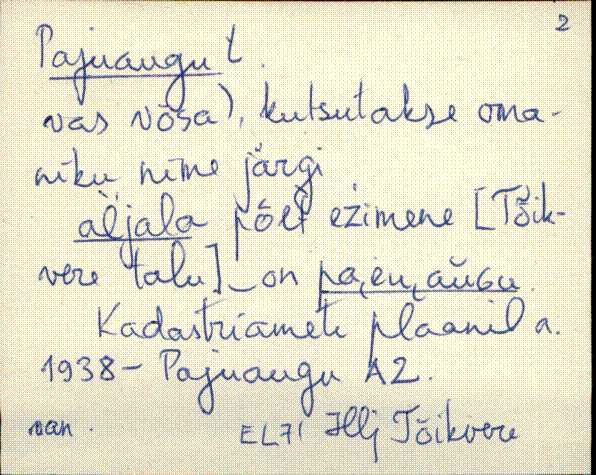 2
Pajuaugu t.
vas võsa), kutsutakse oma-
niku nime järgi
äĺjala põĺt ezimene [Tõik-
vere talu] _ on
Kadastriameti plaanil a.
1938 - Pajuaugu A2.
van. EL71 Hlj Tõikvere